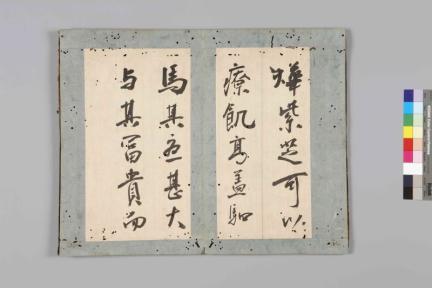 燁紫芝可以
療飢髙盖駟
馬其憂甚大
与其冨貴而